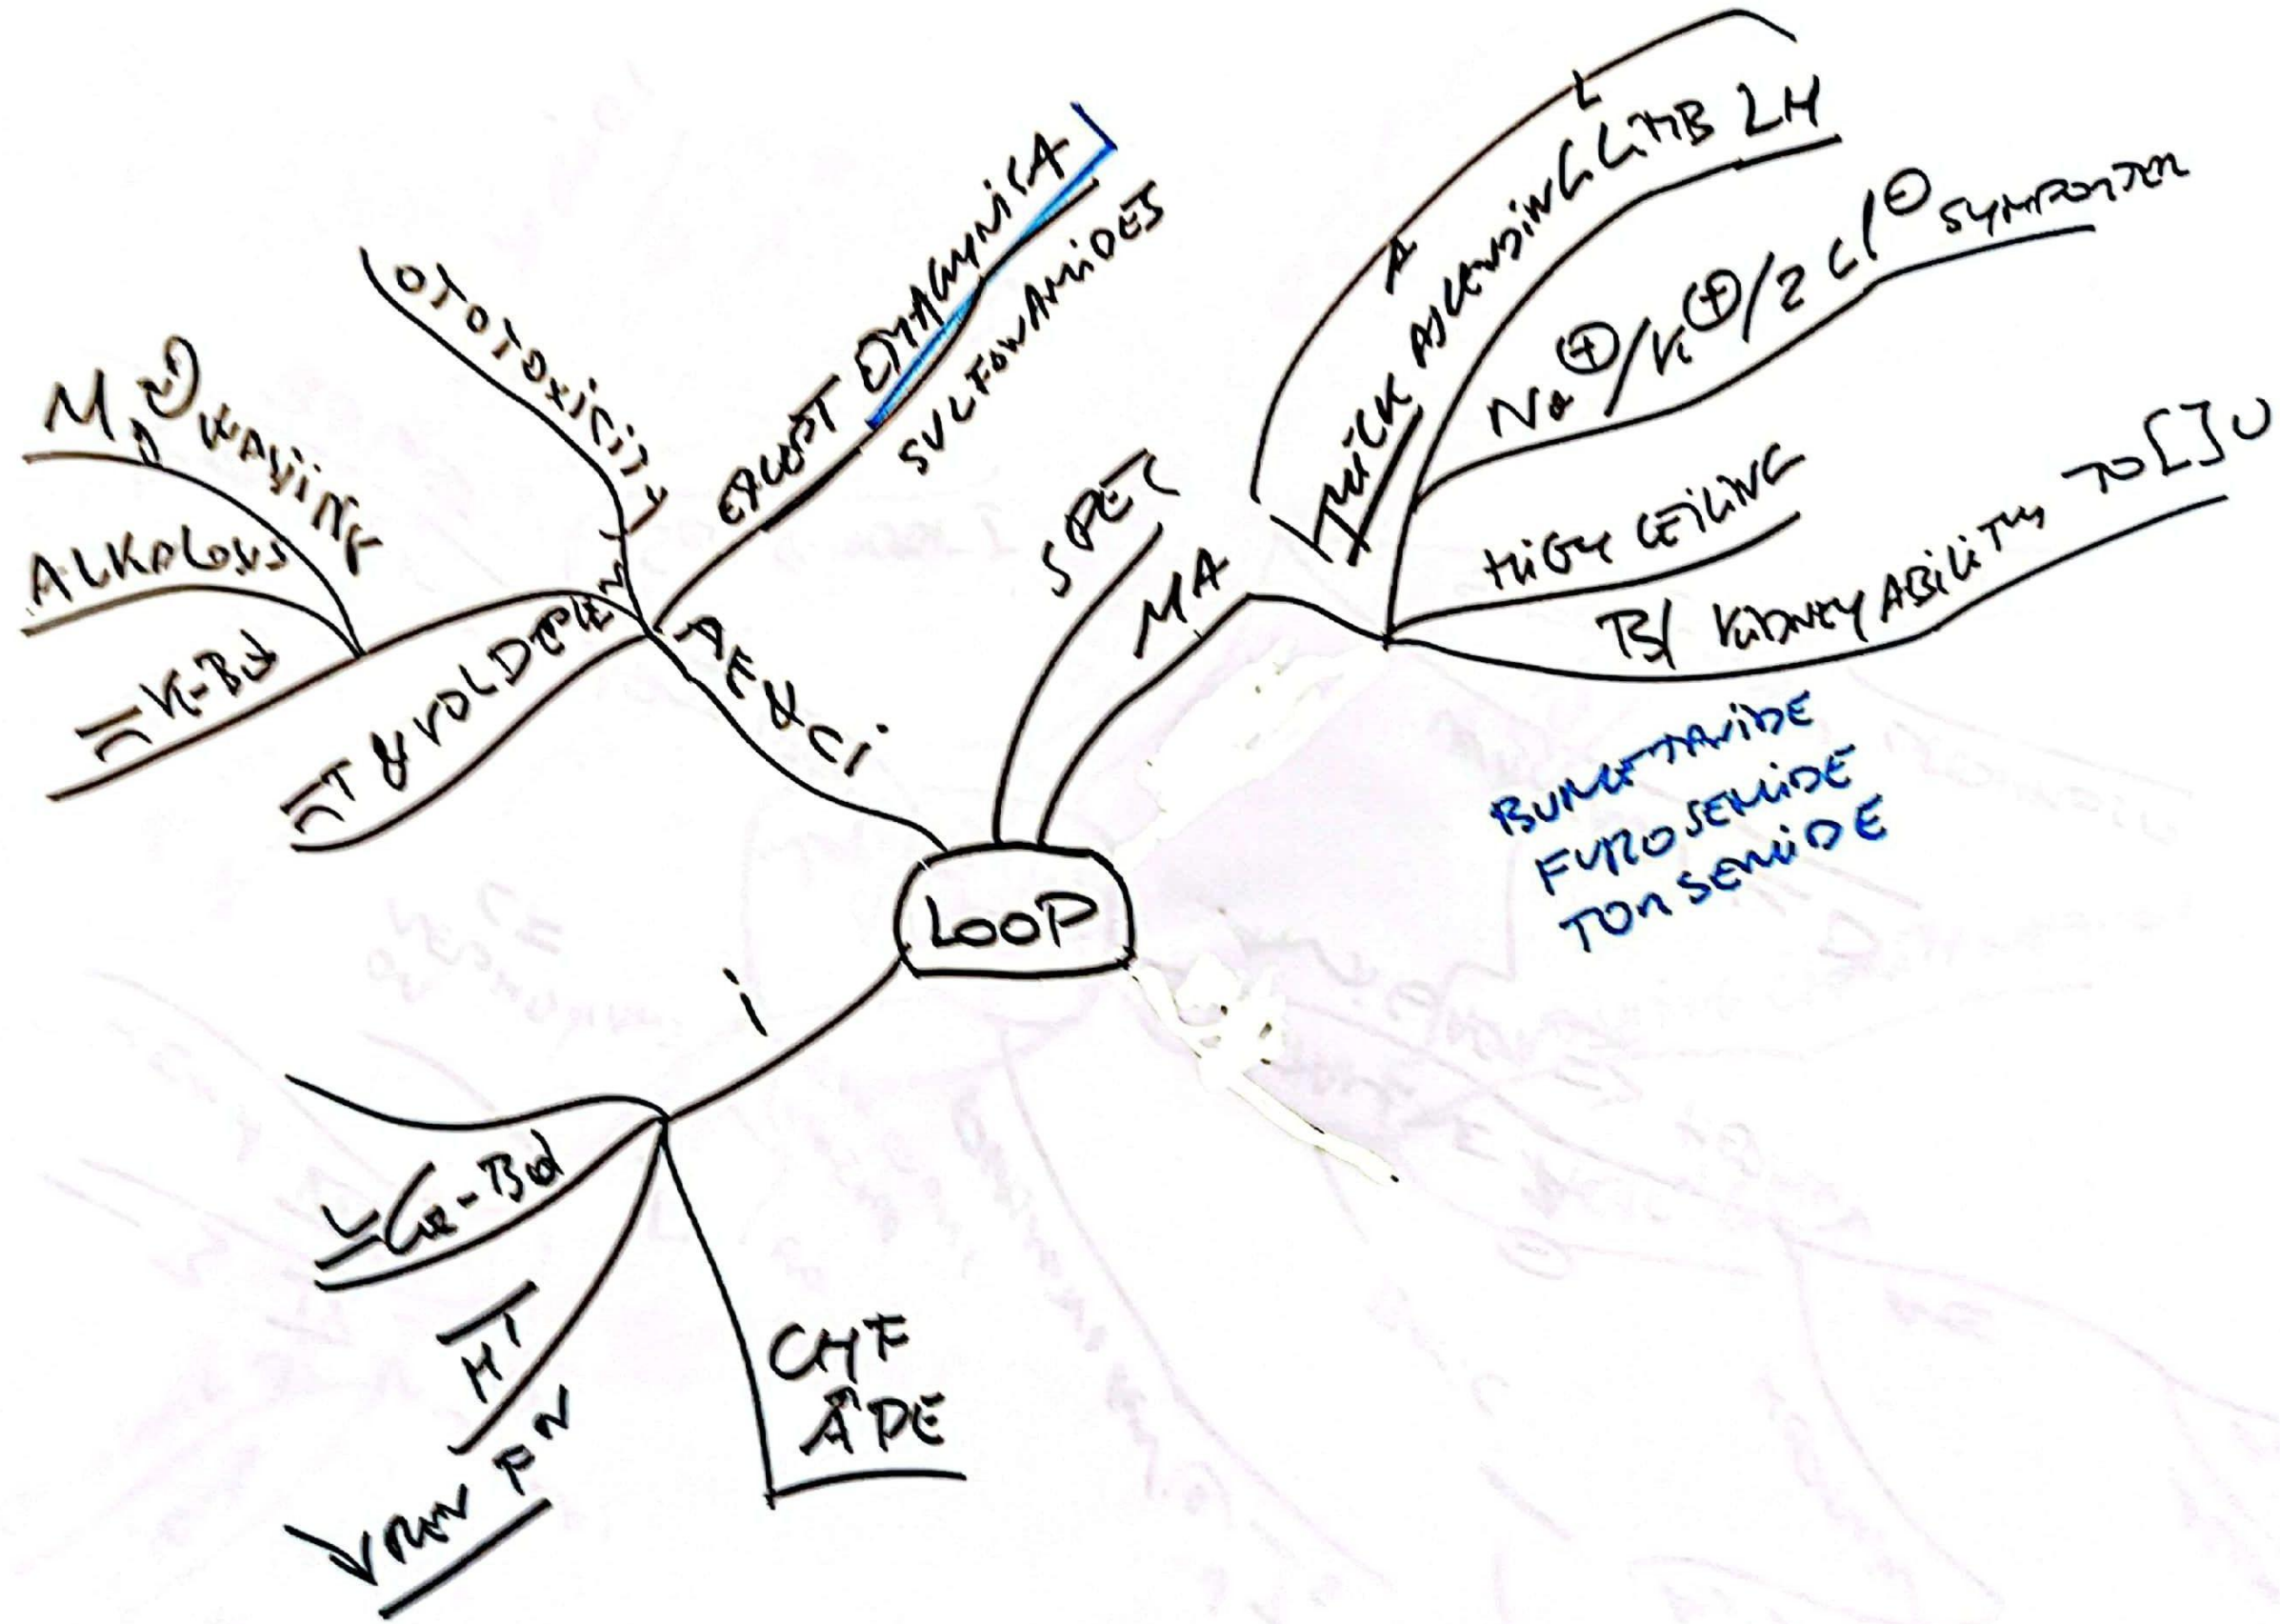 LOOP
SPEC
MA
T
A
L
THICK ASCENDING LIMB LH
Na⊕/K⊕/2 Cl⊖ SYMPORTER
HIGH CEILING
B/ KIDNEY ABILITY TO [] U
BUMETANIDE
FUROSEMIDE
TORSEMIDE
AE & CI
EXCEPT ETHACRYNIC A
SULFONAMIDES
OTOTOXICITY
Mg WASTING
ALKALOSIS
K-Bd
HT & VOL DEPLEN
i
Ca-Bd
HT
↓ REN FN
CHF
APE